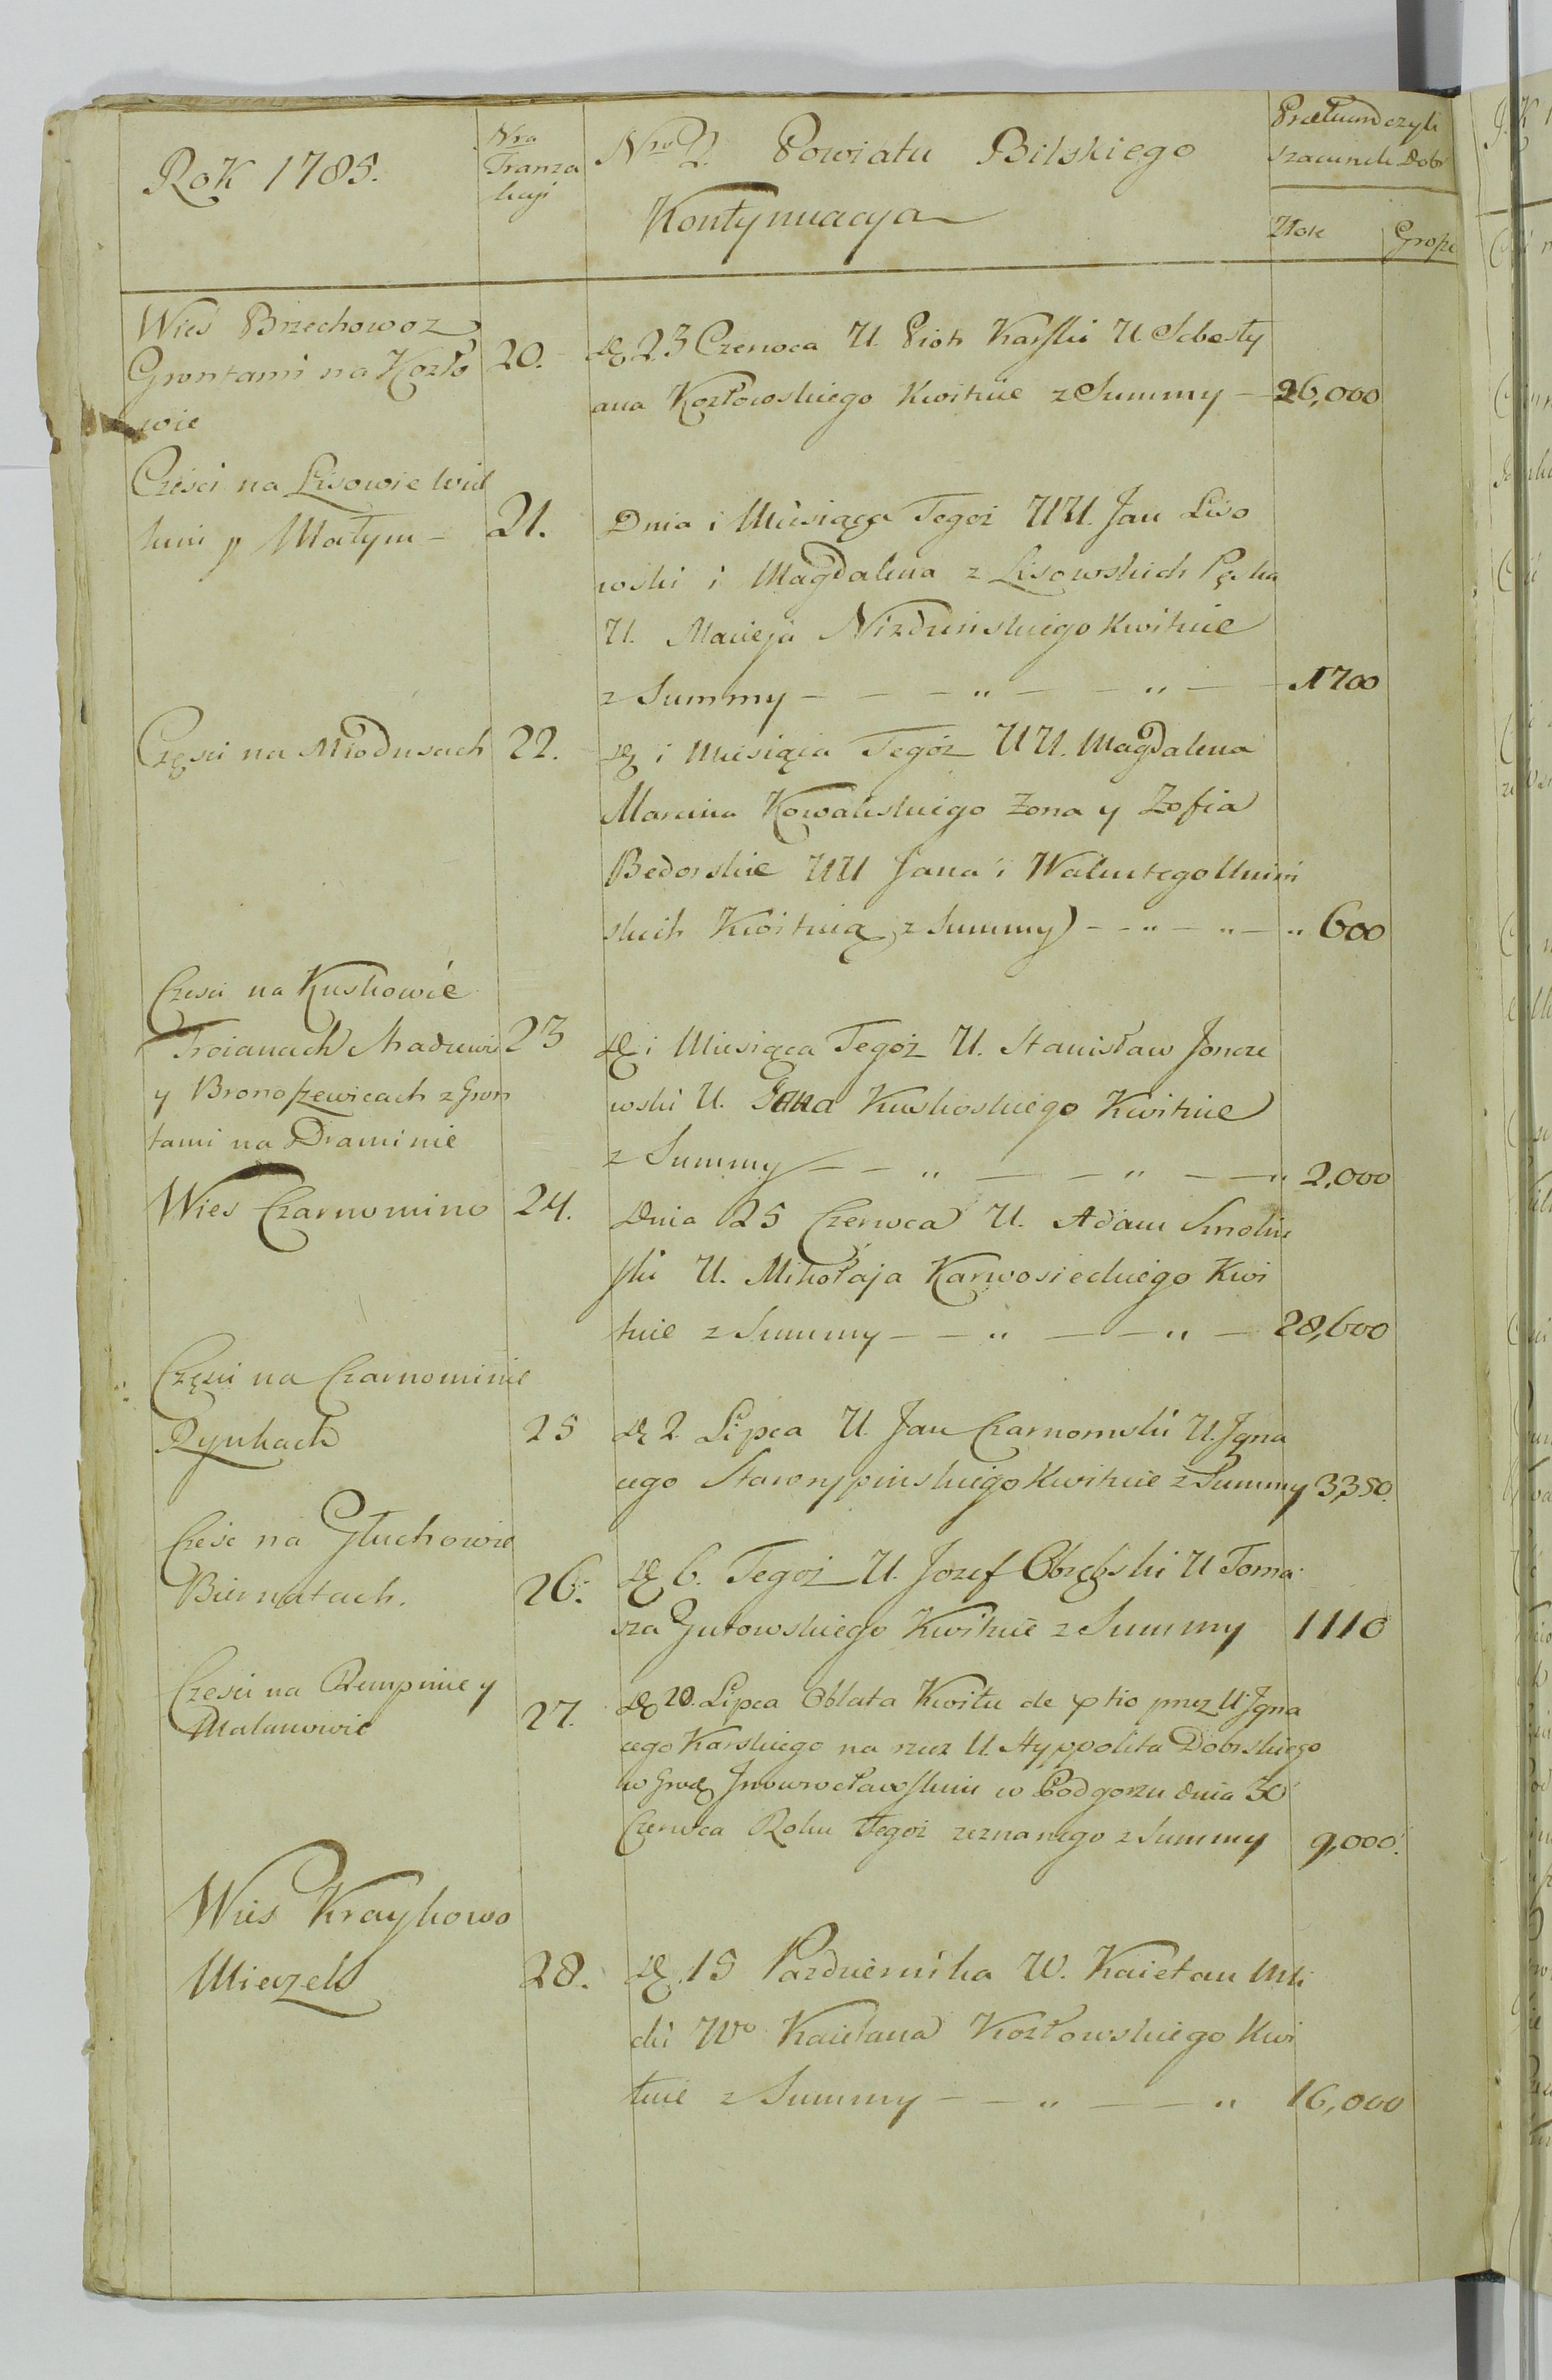 Rok 1785.
Nra
Tranza
kcyi
Nro 2. Powiatu Bilskiego
Kontynuacya
Pretium czyli
szacunek Dobr
Złote
Grosze
Wieś Brzechowo z
Grontami na Kozło
wie
20.
D. 23 Czerwca U. Piotr Karski U Sebesty
ana Kozłowskiego Kwituie z Summy — 26,000
Części na Lisowie Wiel
kim y Małym —
21.
Dnia i Miesiąca Tegoż UU. Jan Liso
wski i Magdalena z Lisowskich
U. Macieja Niedzinskiego Kwituie
z Summy — — — „ — — „ — 1700
Części na Miodusach
22.
D. i Miesiąca Tegóż UU. Magdalena
Marcina Kowalewskiego Żona y Zofia
Bedorskie UU Jana i Walentego Unini
skich Kwituią z Summy — — „ — „ — „ 600
Czesci na Kuskowie
Troianach
y Bronoszewicach z Gron
tami na Draminie
23
D. i Miesiąca Tegoż U. Stanisław Joncze
wski U. Jana Kuskoskiego Kwituie
z Summy — — „ — — „ — — „ 2,000
Wies Czarnomino
24.
Dnia 25 Czerwca U. Adam Smolin
ski U. Mikołaja Karwosieckiego Kwi
tuie z Summy — — „ — — „ — 28,600
Części na Czarnominie
Rynkach
25
D. 2 Lipca U. Jan Czarnomski U. Jgna
cego Starorypinskiego Kwituie z Summy 3,350.
Cześc na Głuchowie
Biernatach.
26.
D. 6. Tegoż U. Jozef Obrębski U Toma
sza Gutowskiego Kwituie z Summy 1110
Czesci na Rempinie y
Malanowie
27.
D. 20. Lipca Oblata Kwitu de ptio przez U. Jgna
cego Karskiego na rzecz U. Hyppolita Dobrskiego
w Grodz Jnowrocławskim w Podgorzu dnia 30
Czerwca Roku Tegoż zeznanego z Summy 9,000.
Wies Kraykowo
Miezels
28.
D. 15 Pazdziernika W. Kaietan Mli
cki Wo Kaietana Kozłowskiego Kwi
tuie z Summy — — „ — — „ 16,000